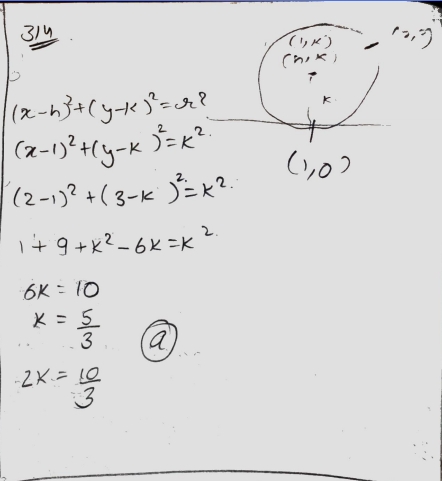 314
(1,K)
(h,K)
K
(1,0)
(x-h)²+(y-K)²=r²
(x-1)²+(y-K)²=K².
(2-1)²+(3-K)²=K².
1+9+K²-6K=K².
6K=10
K=5/3
(a)
2K=10/3